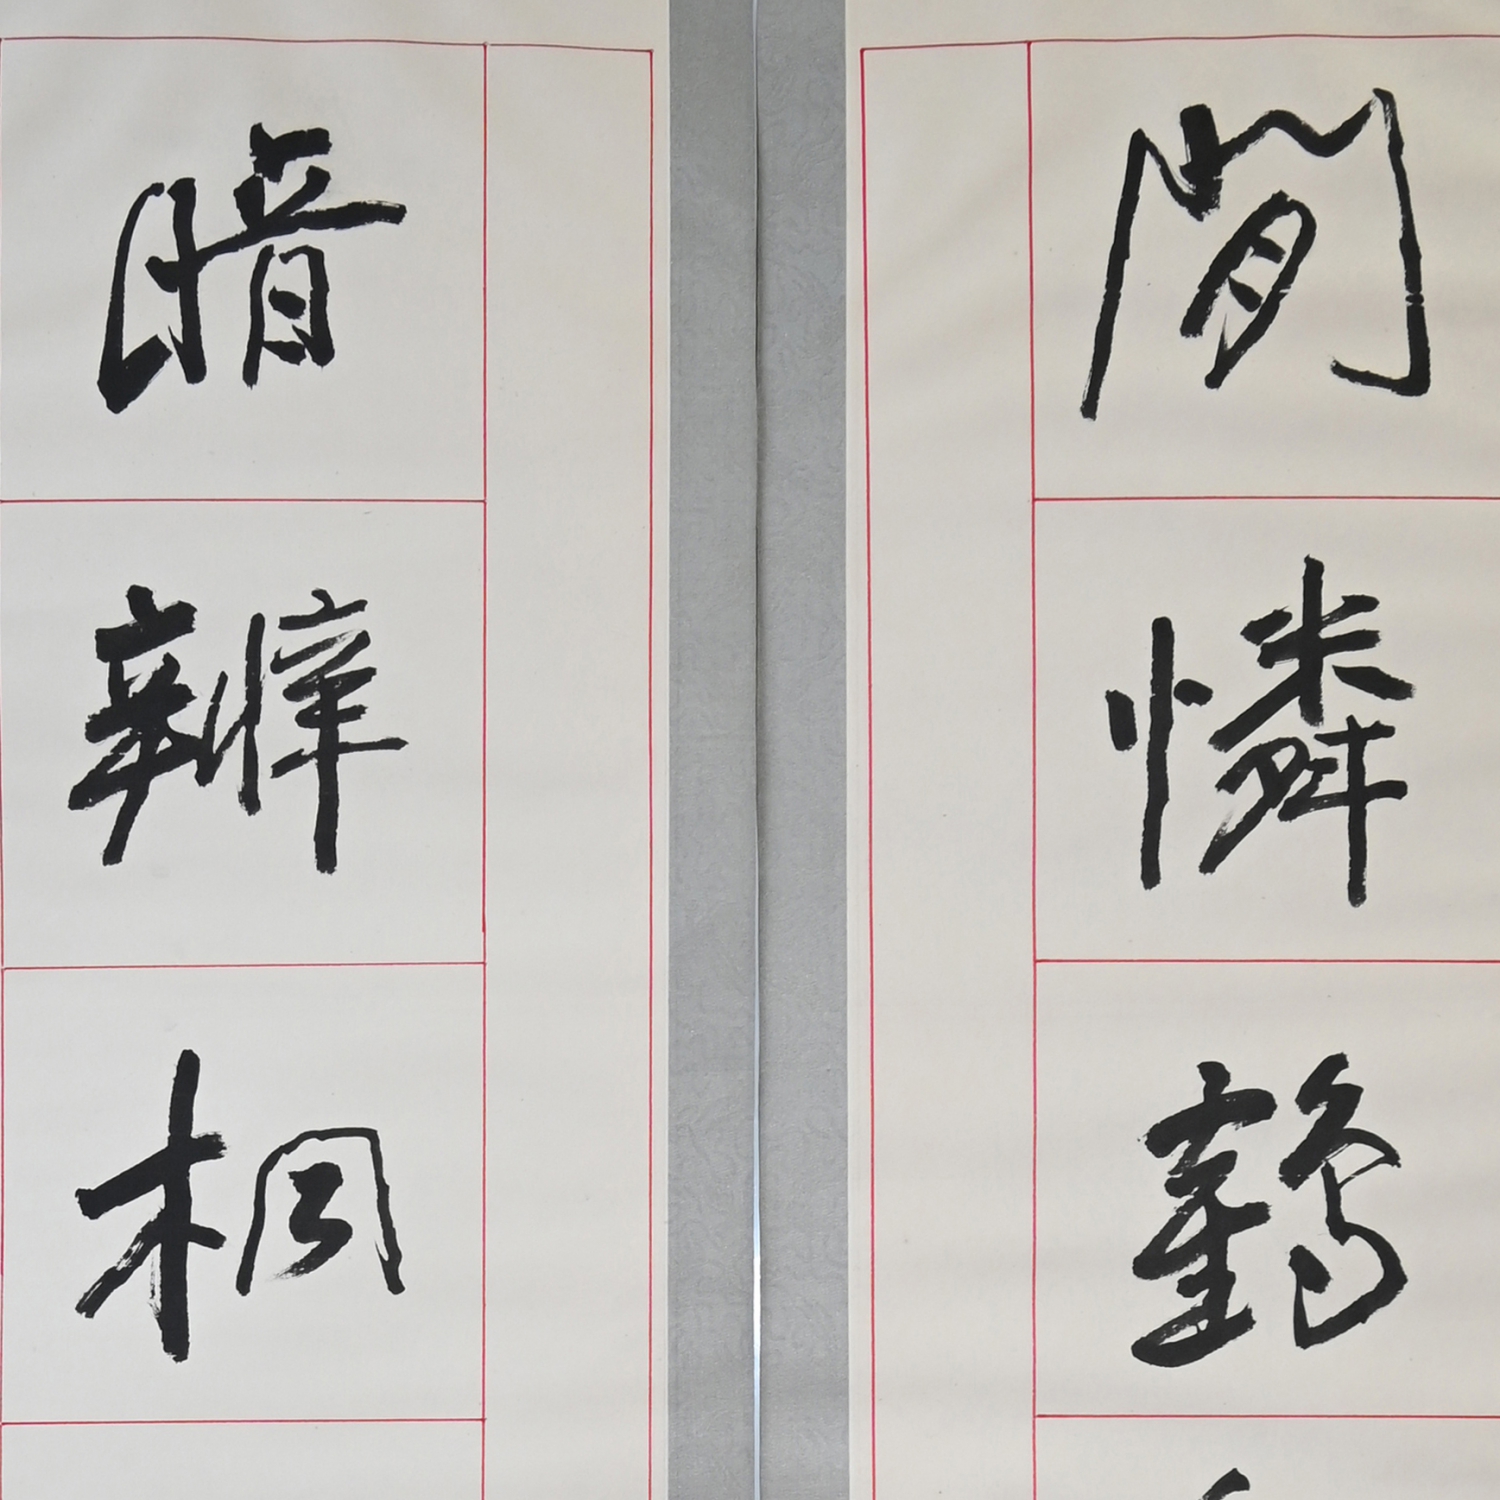 閒憐鶴
暗辨桐